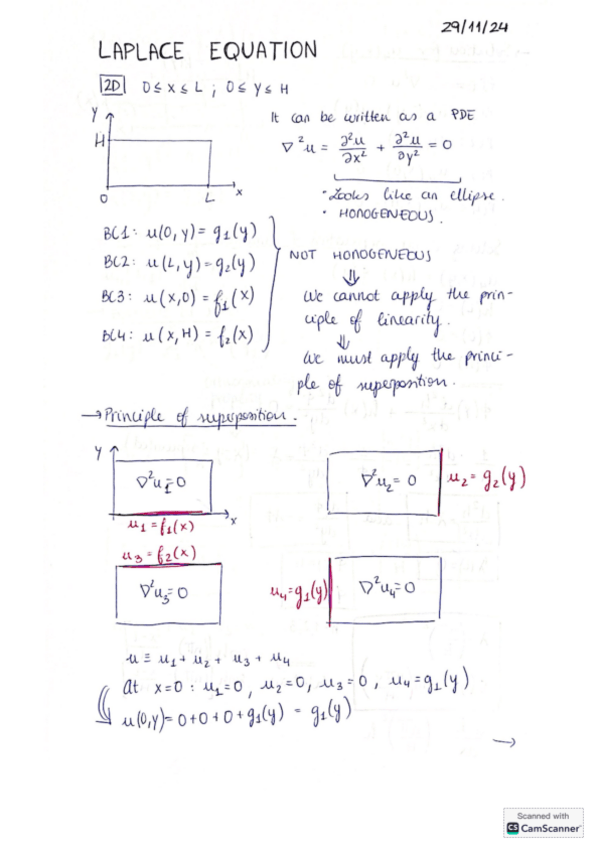 29/11/24
LAPLACE EQUATION
2D 0≤x≤L ; 0≤y≤H
It can be written as a PDE
∇²u = ∂²u/∂x² + ∂²u/∂y² = 0
• Looks like an ellipse.
• HOMOGENEOUS.
y
H
0
L
x
BC1: u(0,y)=g₁(y)
BC2: u(L,y)=g₂(y)
BC3: u(x,0)=f₁(x)
BC4: u(x,H)=f₂(x)
NOT HOMOGENEOUS
⇓
We cannot apply the prin-
ciple of linearity.
⇓
We must apply the princi-
ple of superposition.
→ Principle of superposition.
y
∇²u₁=0
x
u₁=f₁(x)
∇²u₂=0
u₂=g₂(y)
u₃=f₂(x)
∇²u₃=0
u₄=g₁(y)
∇²u₄=0
u ≡ u₁+u₂+u₃+u₄
At x=0: u₁=0, u₂=0, u₃=0, u₄=g₁(y)
u(0,y)=0+0+0+g₁(y) = g₁(y)
→
Scanned with
CS CamScanner